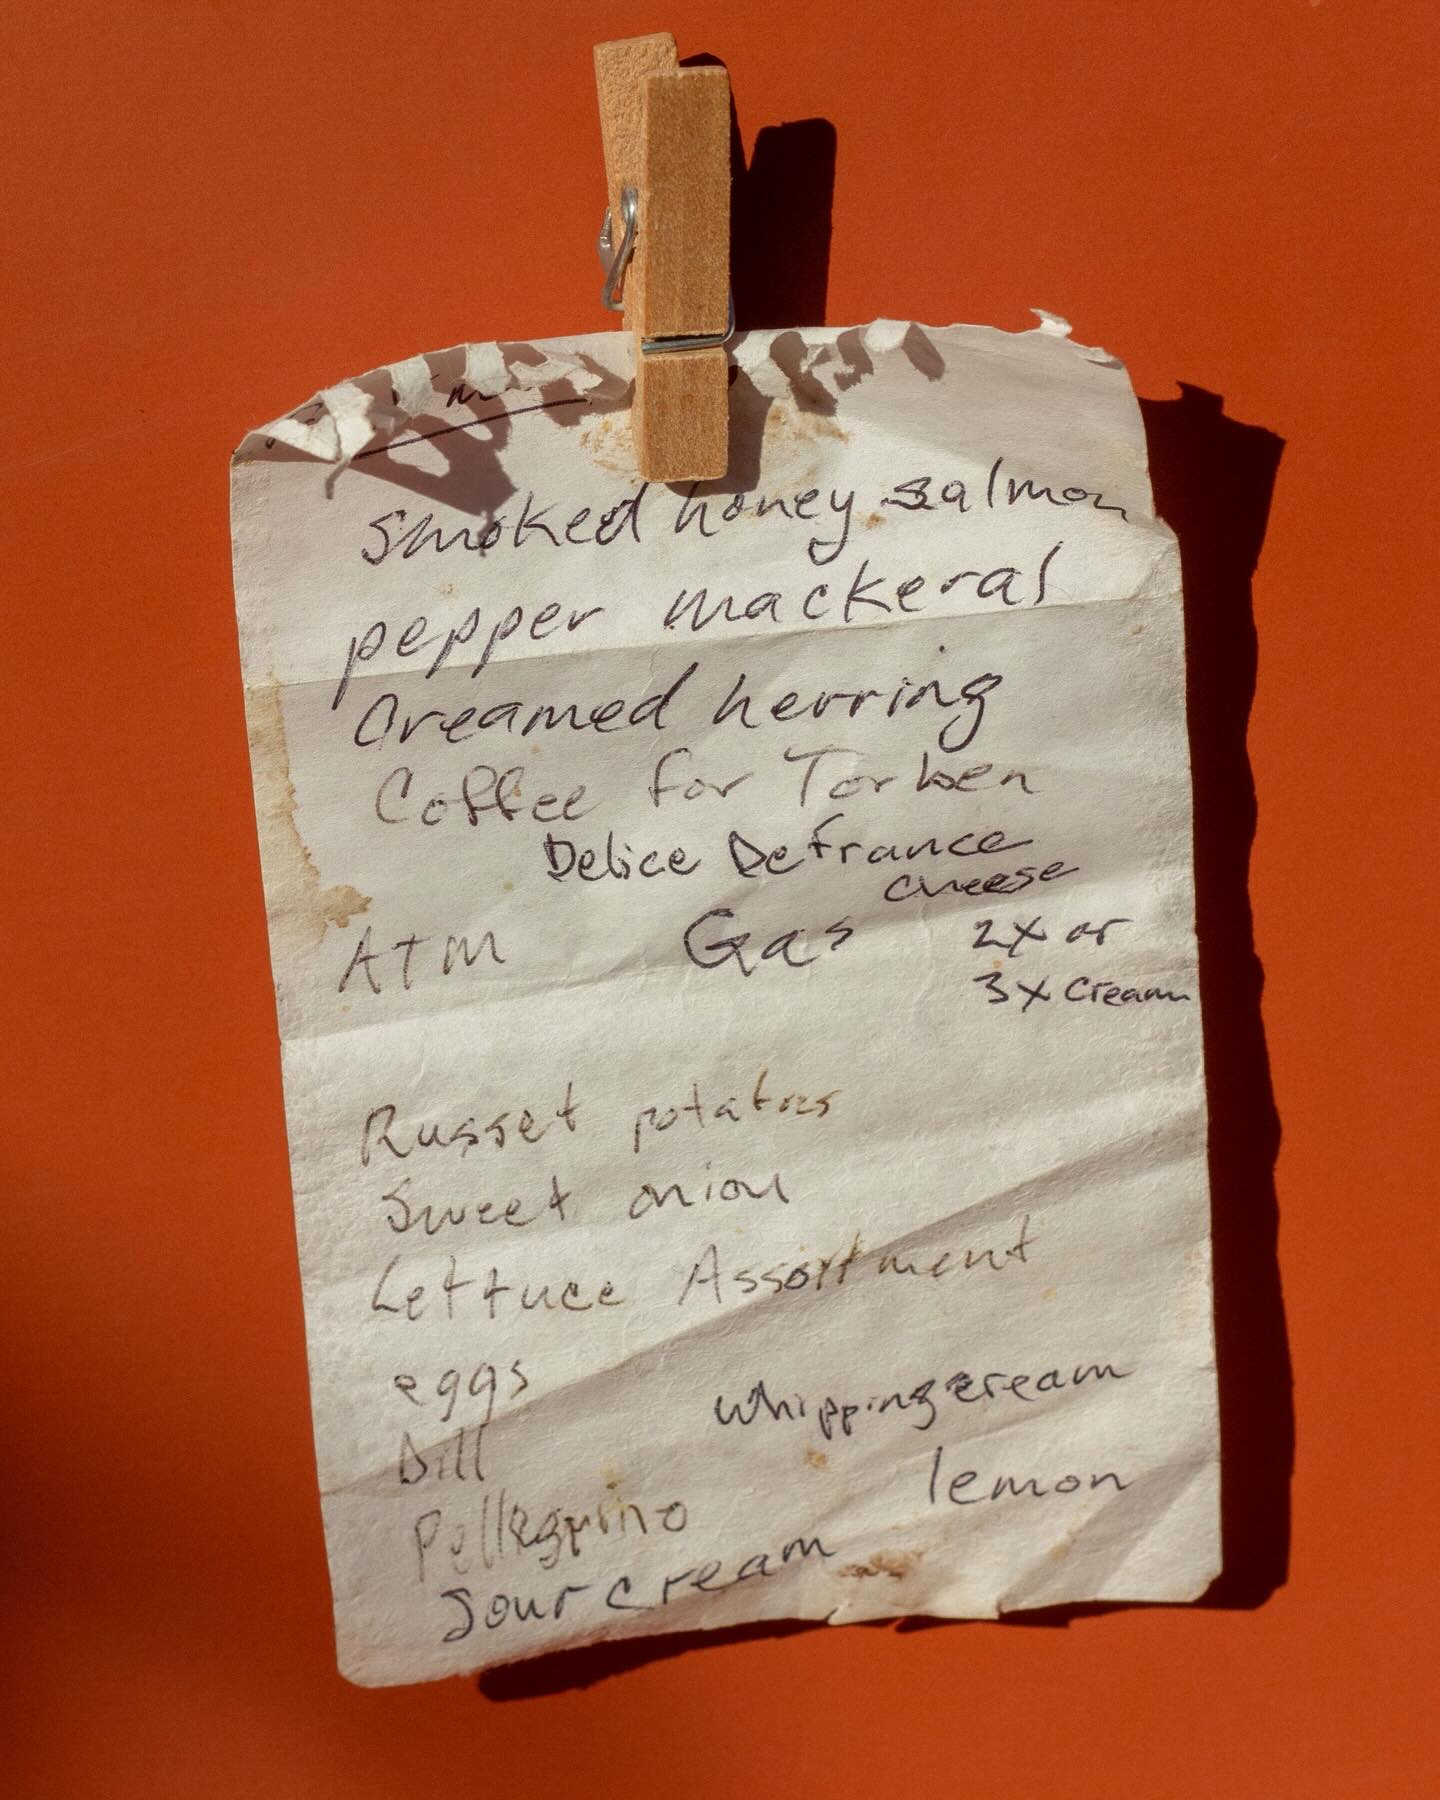 Smoked honey salmon
pepper mackeral
Creamed herring
Coffee for Torben
Delice DeFrance
cheese
ATM Gas 2X or
3X cream
Russet potatoes
Sweet onion
Lettuce Assortment
eggs
whipping cream
Dill
lemon
Pellegrino
Sour cream